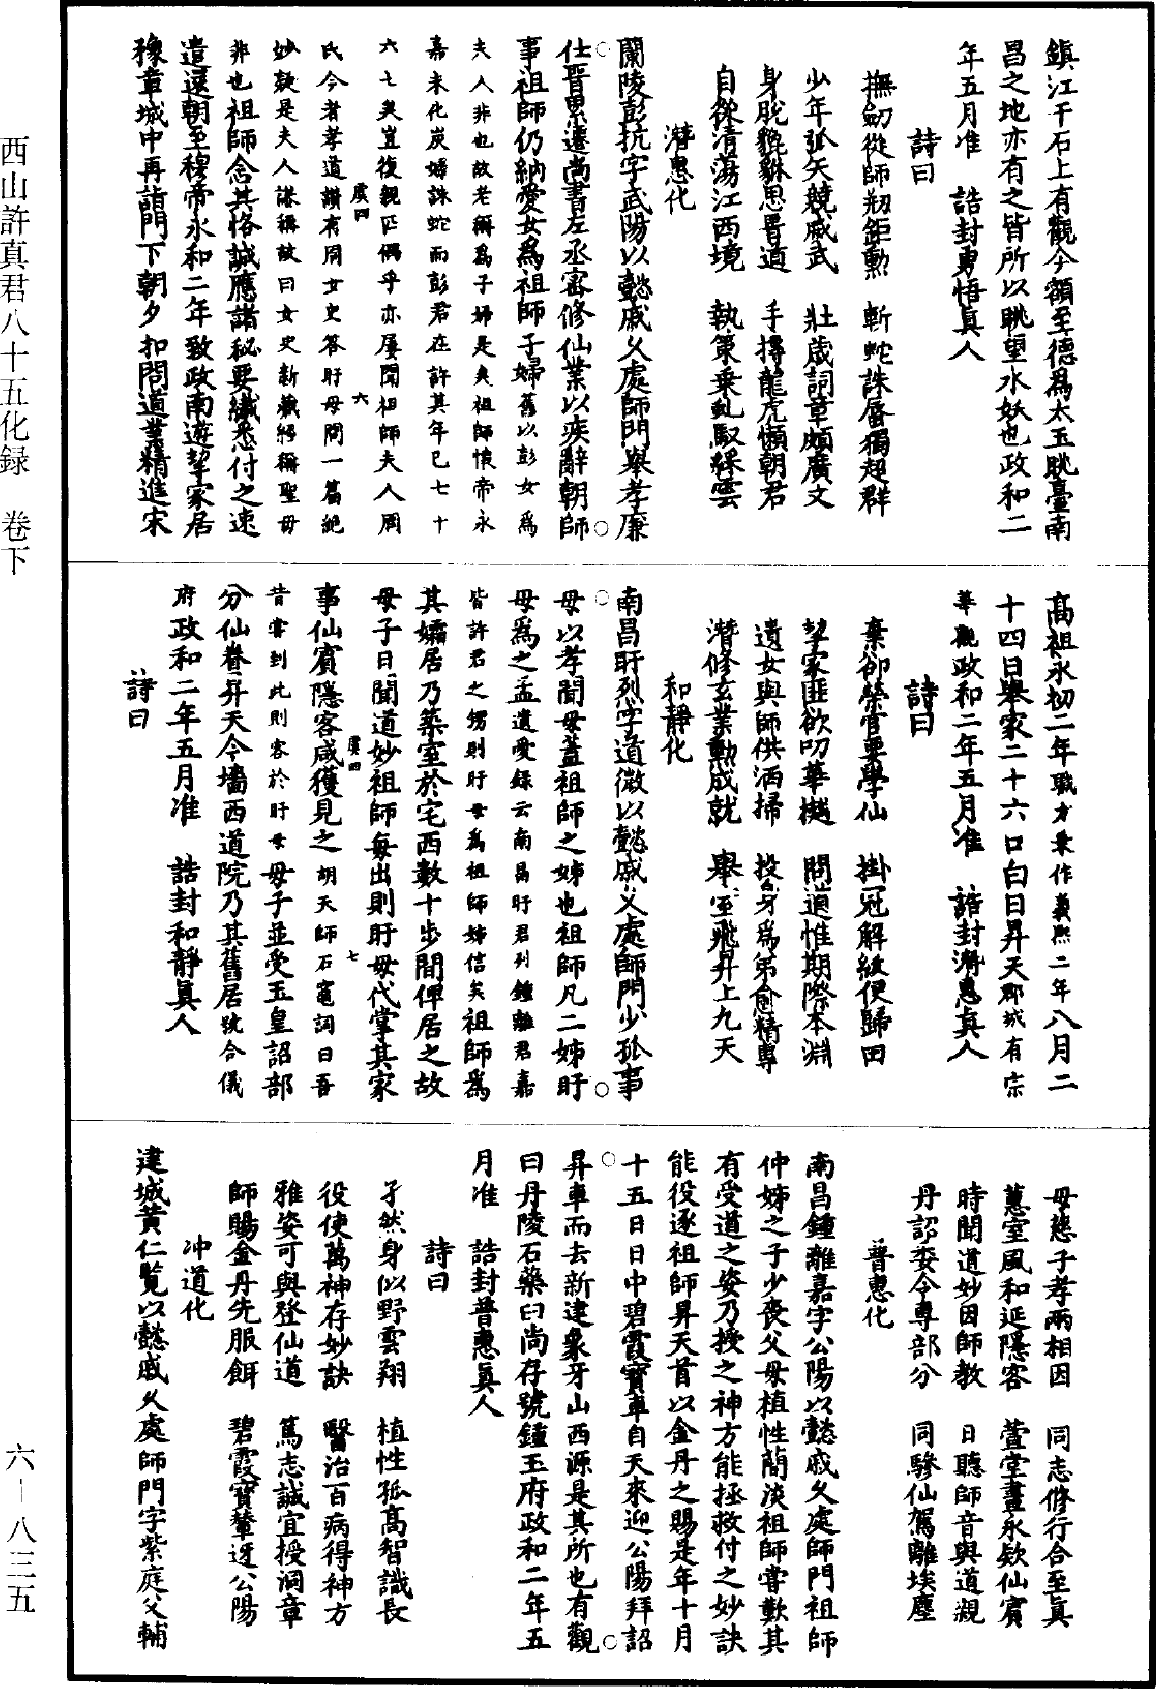 鎮江干石上有觀今額至德爲太玉眺臺南
昌之地亦有之皆所以眺望水妖也政和二
年五月准　誥封勇悟眞人
詩曰
撫劒從師剏鉅勳　斬蛇誅蜃獨超群
少年弧矢競威武　壯歲詞章頗廣文
身脫貔貅思晋道　手摶龍虎懶朝君
自從清蕩江西境　執策乗虬馭綵雲
潛惠化
蘭陵彭抗字武陽以懿戚久處師門舉孝廉
仕晋累遷尚書左丞密修仙業以疾辭朝師
事祖師仍納愛女爲祖師子婦舊以彭女爲
夫人非也故老稱爲子婦是矣祖師懷帝永
嘉末化炭婦誅蛇而彭君在許其年已七十
六七矣豈復親匹偶乎亦屢聞祖師夫人周
氏今者孝道讚有周女史答盱母問一篇絶
妙疑是夫人謙稱故曰女史新藏經稱聖母
非也祖師念其恪誠應諸秘要纎悉付之速
遣還朝至穆帝永和二年致政南遊挈家居
豫章城中再詣門下朝夕扣問道業精進宋
高祖永初二年職方乗作義熙二年八月二
十四日舉家二十六口白日昇天郡城有宗
華觀政和二年五月准　誥封潛惠眞人
詩曰
棄卻榮官要學仙　掛冠解綬便歸田
挈家匪欲叨華樾　問道惟期際本淵
遺女與師供洒掃　投身爲弟愈精專
潛修玄業勳成就　舉室飛昇上九天
和靜化
南昌盱烈字道微以懿戚久處師門少孤事
母以孝聞母蓋祖師之姊也祖師凡二姊盱
母爲之孟遺愛錄云南昌盱君列鍾離君嘉
皆許君之甥則盱母爲祖師姊信矣祖師爲
其孀居乃築室於宅西數十步間俾居之故
母子日聞道妙祖師每出則盱母代掌其家
事仙賓隱客咸獲見之胡天師石竈詞曰吾
昔嘗到此則客於盱母母子並受玉皇詔部
分仙眷昇天今墻西道院乃其舊居號合儀
府政和二年五月准　誥封和靜眞人
詩曰
母慈子孝兩相因　同志修行合至眞
蕙室風和延隱客　萱堂晝永欵仙賓
時聞道妙因師教　日聽師音與道親
丹詔委令專部分　同驂仙駕離埃塵
普惠化
南昌鍾離嘉字公陽以懿戚久處師門祖師
仲姊之子少喪父母植性簡淡祖師嘗歎其
有受道之姿乃授之神方能拯救付之妙訣
能役逐祖師昇天首以金丹之賜是年十月
十五日日中碧霞寶車自天來迎公陽拜詔
昇車而去新建象牙山西源是其所也有觀
曰丹陵石藥臼尚存號鍾玉府政和二年五
月准　誥封普惠眞人
詩曰
孑然身似野雲翔　植性孤高智識長
役使萬神存妙訣　醫治百病得神方
雅姿可與登仙道　篤志誠宜授洞章
師賜金丹先服餌　碧霞寶輦迓公陽
冲道化
建城黃仁覽以懿戚久處師門字紫庭父輔
虞四　六
虞四　七
西山許真君八十五化録　卷下
六－八三五